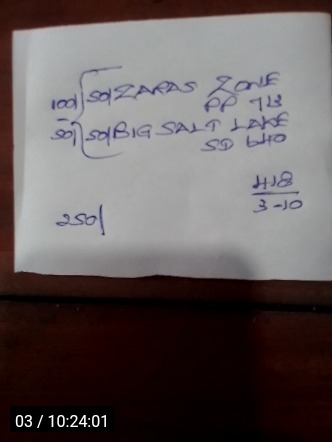 100/ 50/ ZARAS ZONE
PP 713
50/ 50/ BIG SALT LAKE
SD 640
418
3-10
250/
03 / 10:24:01